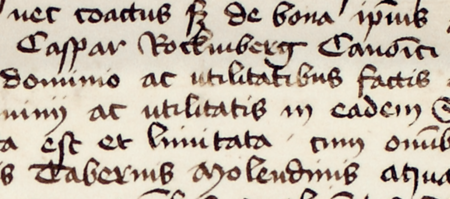 nec coactus sz de bona ipius
Caspar Rockinberg Canoici
dominio ac utilitatibus factis
ac utilitatis in eadem
a est et limitata cum
s Tabernis Molendinis